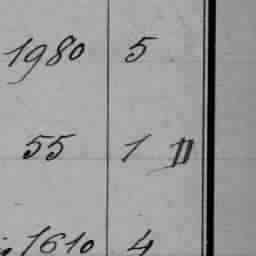 1980 5
55 1 D
1610 4